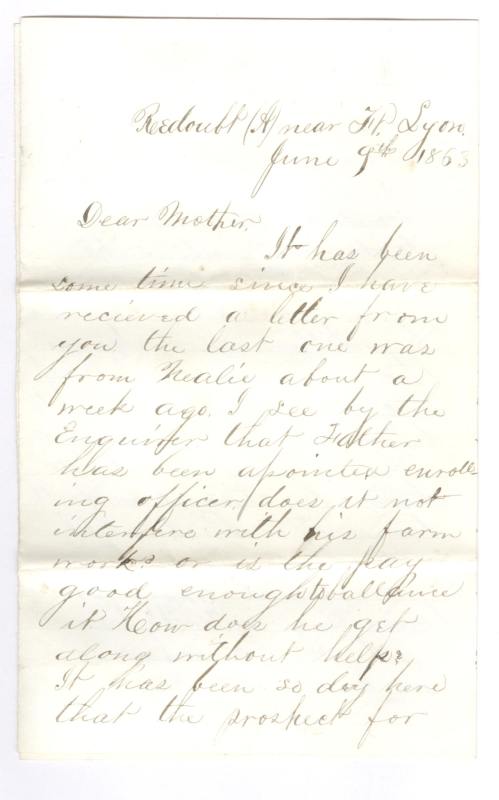 Redoubt (A) near Ft. Lyon.
June 9th 1863
Dear Mother.
It has been
some time since I have
recieved a letter from
you the last one was
from Nealie about a
week ago. I see by the
Enquirer that Father
has been apointed enroll-
ing officer. does it not
interfere with his farm
work? or is the pay
good enough to ballance
it How does he get
along without help?
It has been so dry here
that the prospect for